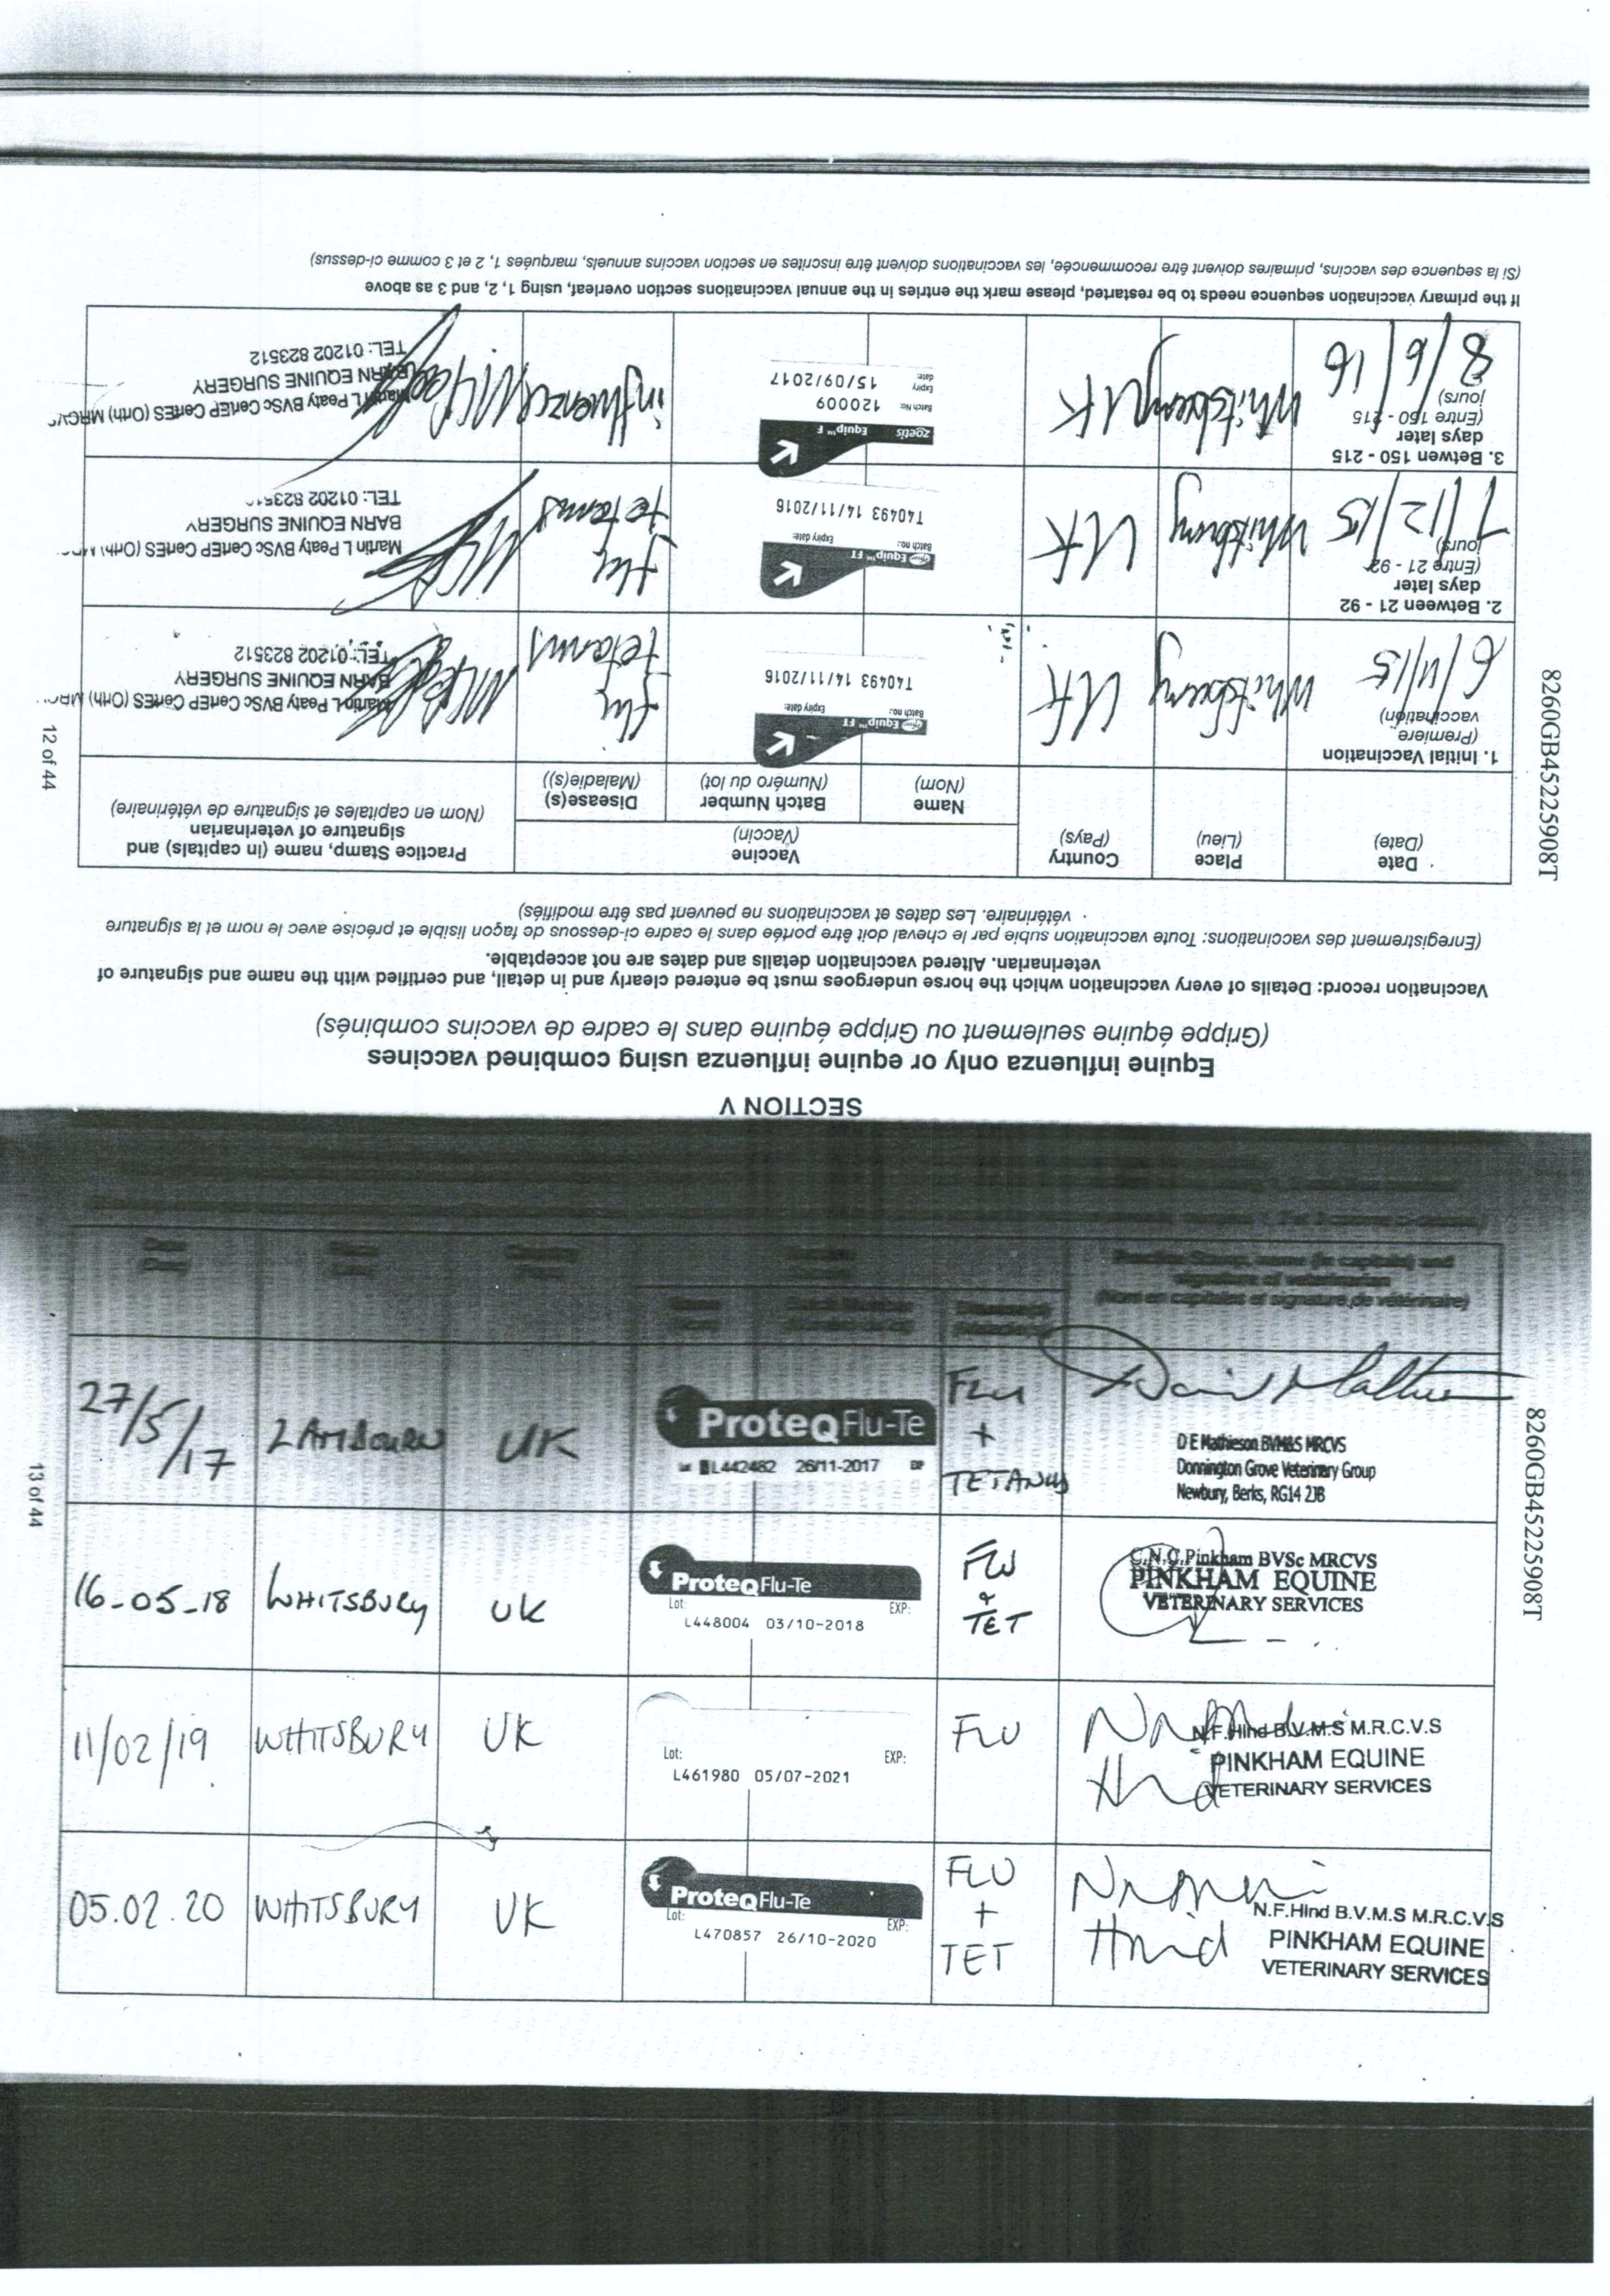 SECTION V
Equine influenza only or equine influenza using combined vaccines
(Grippe équine seulement ou Grippe équine dans le cadre de vaccins combinés)
Vaccination record: Details of every vaccination which the horse undergoes must be entered clearly and in detail, and certified with the name and signature of
veterinarian. Altered vaccination details and dates are not acceptable.
(Enregistrement des vaccinations: Toute vaccination subie par le cheval doit être portée dans le cadre ci-dessous de façon lisible et précise avec le nom et la signature
vétérinaire. Les dates et vaccinations ne peuvent pas être modifiés)
Date
(Date)
Place
(Lieu)
Country
(Pays)
Vaccine
(Vaccin)
Name
(Nom)
Batch Number
(Numéro du lot)
Disease(s)
(Maladie(s))
Practice Stamp, name (in capitals) and
signature of veterinarian
(Nom en capitales et signature de vétérinaire)
1. Initial Vaccination
(Premiere
vaccination)
6/11/15
Whitsbury
UK
Equip™ FT
Batch no.: Expiry date:
T40493 14/11/2016
flu
tetanus
Martin L Peaty BVSc CertEP CertES (Orth)
BARN EQUINE SURGERY
TEL: 01202 823512
2. Between 21 - 92
days later
(Entre 21 - 92
jours)
7/12/15
Whitsbury
UK
Equip™ FT
Batch no.: Expiry date:
T40493 14/11/2016
flu
tetanus
Martin L Peaty BVSc CertEP CertES (Orth)
BARN EQUINE SURGERY
TEL: 01202
3. Betwen 150 - 215
days later
(Entre 150 - 215
jours)
8/6/16
Whitsbury
UK
zoetis Equip™ F
Batch No: 120009
Expiry date: 15/09/2017
influenza
Martin L Peaty BVSc CertEP CertES (Orth) MRCVS
BARN EQUINE SURGERY
TEL: 01202 823512
If the primary vaccination sequence needs to be restarted, please mark the entries in the annual vaccinations section overleaf, using 1, 2, and 3 as above
(Si la sequence des vaccins, primaires doivent être recommencée, les vaccinations doivent être inscrites en section vaccins annuels, marquées 1, 2 et 3 comme ci-dessus)
12 of 44
8260GB45225908T
Practice Stamp, name (in capitals) and
signature of veterinarian
(Nom en capitales et signature de vétérinaire)
27/5/17
LAMBOURN
UK
ProteqFlu-Te
L442482 26/11-2017
FLU
+
TETANUS
D E Mathieson BVM&S MRCVS
Donnington Grove Veterinary Group
Newbury, Berks, RG14 2JB
16-05-18
WHITSBURY
UK
ProteqFlu-Te
Lot: EXP:
L448004 03/10-2018
FLU
&
TET
C.N.C.Pinkham BVSc MRCVS
PINKHAM EQUINE
VETERINARY SERVICES
11/02/19
WHITSBURY
UK
Lot: EXP:
L461980 05/07-2021
FLU
N.F.Hind B.V.M.S M.R.C.V.S
PINKHAM EQUINE
VETERINARY SERVICES
05.02.20
WHITSBURY
UK
ProteqFlu-Te
Lot: EXP:
L470857 26/10-2020
FLU
+
TET
N.F.Hind B.V.M.S M.R.C.V.S
PINKHAM EQUINE
VETERINARY SERVICES
13 of 44
8260GB45225908T